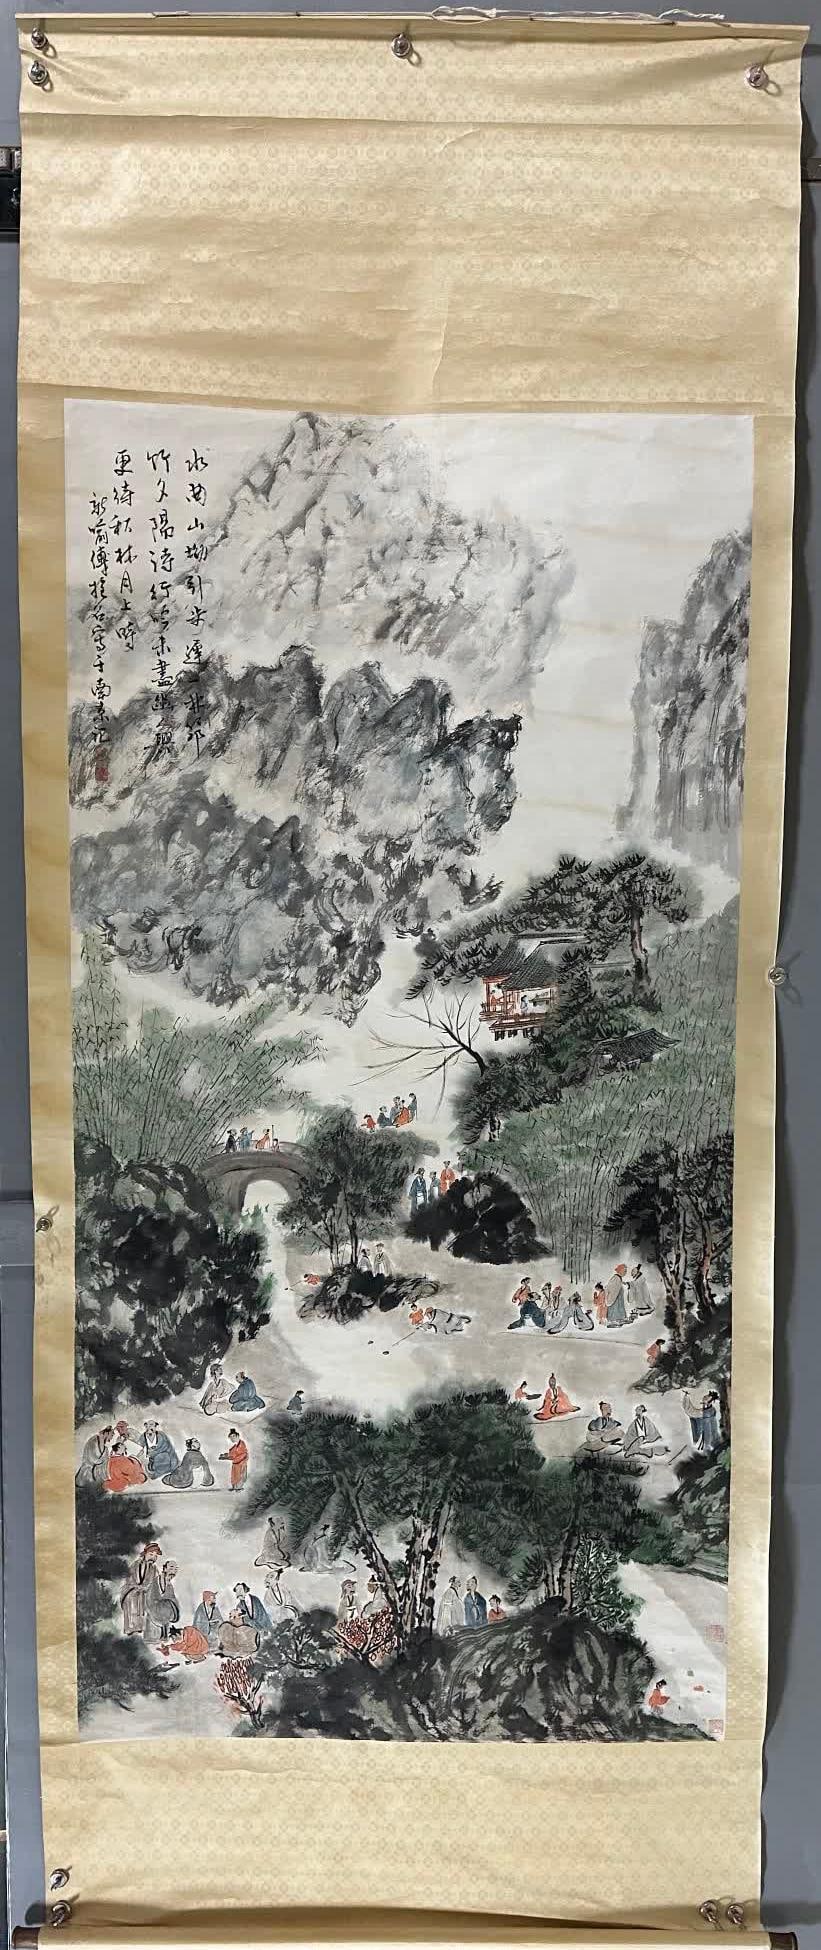 水曲山坳引步遲一林筇
竹夕陽詩行吟未盡幽人興
更待秋林月上時
新喻傅抱石寫于南京記